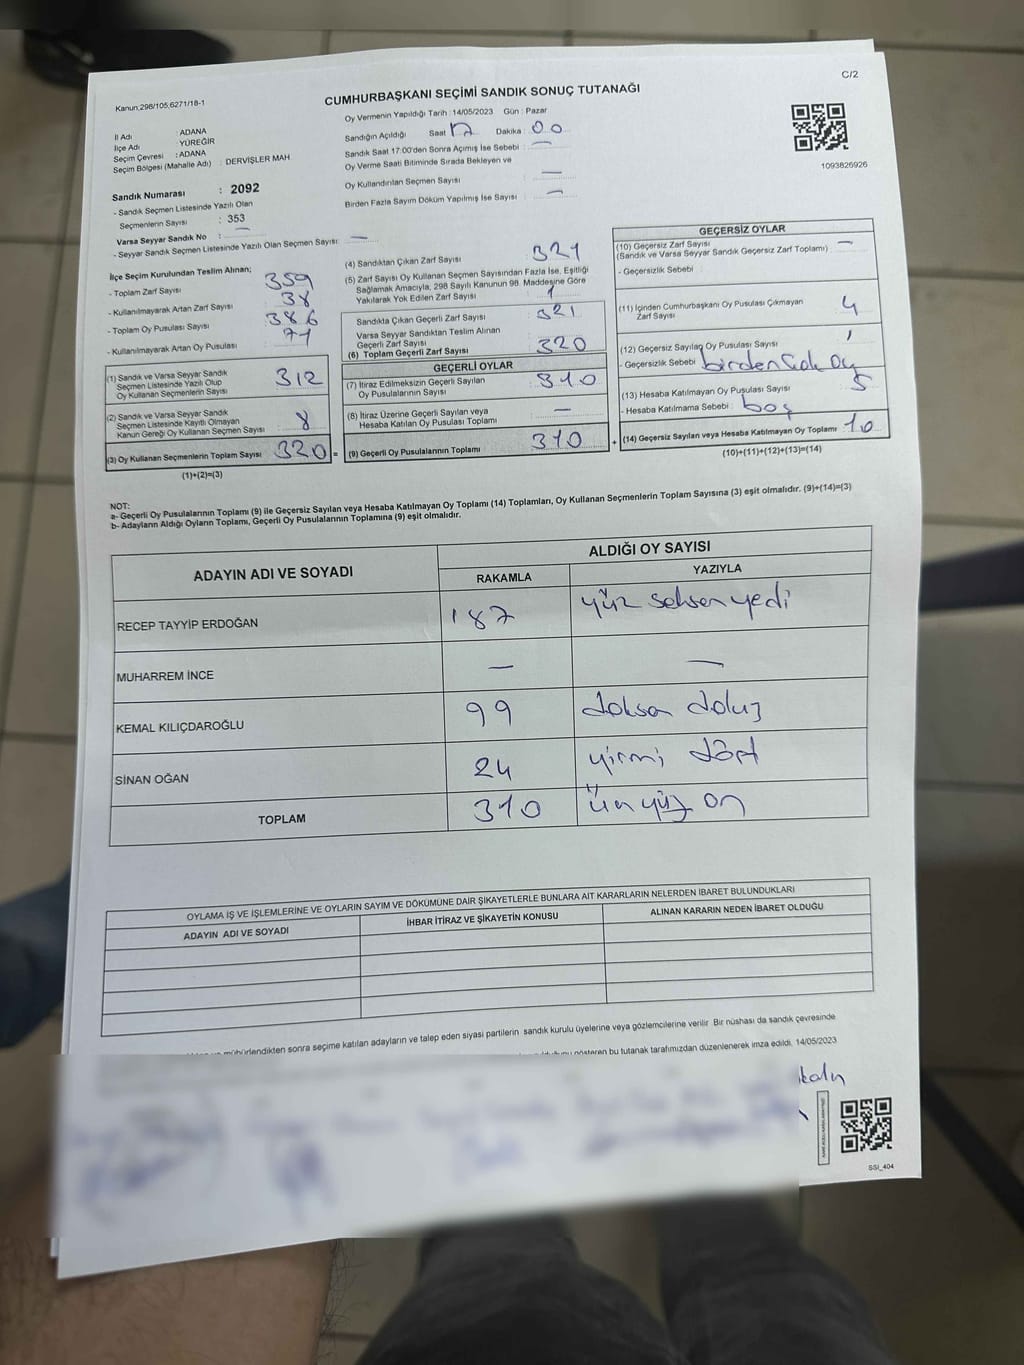 C/2
Kanun;298/105;6271/18-1
CUMHURBAŞKANI SEÇİMİ SANDIK SONUÇ TUTANAĞI
İl Adı : ADANA
İlçe Adı : YÜREĞİR
Seçim Çevresi : ADANA
Seçim Bölgesi (Mahalle Adı) : DERVİŞLER MAH
Sandık Numarası : 2092
- Sandık Seçmen Listesinde Yazılı Olan
Seçmenlerin Sayısı : 353
Varsa Seyyar Sandık No : —
- Seyyar Sandık Seçmen Listesinde Yazılı Olan Seçmen Sayısı: —
Oy Vermenin Yapıldığı Tarih :14/05/2023 Gün : Pazar
Sandığın Açıldığı Saat 17 Dakika : 00
Sandık Saat 17:00'den Sonra Açımış İse Sebebi : —
Oy Verme Saati Bitiminde Sırada Bekleyen ve
Oy Kullandırılan Seçmen Sayısı : —
Birden Fazla Sayım Döküm Yapılmış İse Sayısı : —
1093826926
İlçe Seçim Kurulundan Teslim Alınan;
- Toplam Zarf Sayısı : 359
- Kullanılmayarak Artan Zarf Sayısı : 38
- Toplam Oy Pusulası Sayısı : 386
- Kullanılmayarak Artan Oy Pusulası : 71
(1) Sandık ve Varsa Seyyar Sandık
Seçmen Listesinde Yazılı Olup
Oy Kullanan Seçmenlerin Sayısı : 312
(2) Sandık ve Varsa Seyyar Sandık
Seçmen Listesinde Kayıtlı Olmayan
Kanun Gereği Oy Kullanan Seçmen Sayısı : 8
(3) Oy Kullanan Seçmenlerin Toplam Sayısı : 320 =
(1)+(2)=(3)
(4) Sandıktan Çıkan Zarf Sayısı : 321
(5) Zarf Sayısı Oy Kullanan Seçmen Sayısından Fazla İse, Eşitliği
Sağlamak Amacıyla, 298 Sayılı Kanunun 98. Maddesine Göre
Yakılarak Yok Edilen Zarf Sayısı : 1
Sandıkta Çıkan Geçerli Zarf Sayısı : 321
Varsa Seyyar Sandıktan Teslim Alınan
Geçerli Zarf Sayısı
(6) Toplam Geçerli Zarf Sayısı : 320
GEÇERLİ OYLAR
(7) İtiraz Edilmeksizin Geçerli Sayılan
Oy Pusulalarının Sayısı : 310
(8) İtiraz Üzerine Geçerli Sayılan veya
Hesaba Katılan Oy Pusulası Toplamı : —
(9) Geçerli Oy Pusulalarının Toplamı : 310 +
GEÇERSİZ OYLAR
(10) Geçersiz Zarf Sayısı : —
(Sandık ve Varsa Seyyar Sandık Geçersiz Zarf Toplamı)
- Geçersizlik Sebebi :
(11) İçinden Cumhurbaşkanı Oy Pusulası Çıkmayan
Zarf Sayısı : 4
(12) Geçersiz Sayılan Oy Pusulası Sayısı : 1
- Geçersizlik Sebebi : birden Çok oy
(13) Hesaba Katılmayan Oy Pusulası Sayısı : 5
- Hesaba Katılmama Sebebi : boş
(14) Geçersiz Sayılan veya Hesaba Katılmayan Oy Toplamı : 10
(10)+(11)+(12)+(13)=(14)
NOT:
a- Geçerli Oy Pusulalarının Toplamı (9) ile Geçersiz Sayılan veya Hesaba Katılmayan Oy Toplamı (14) Toplamları, Oy Kullanan Seçmenlerin Toplam Sayısına (3) eşit olmalıdır. (9)+(14)=(3)
b- Adayların Aldığı Oyların Toplamı, Geçerli Oy Pusulalarının Toplamına (9) eşit olmalıdır.
ADAYIN ADI VE SOYADI
ALDIĞI OY SAYISI
RAKAMLA YAZIYLA
RECEP TAYYİP ERDOĞAN 187 yüz seksen yedi
MUHARREM İNCE — —
KEMAL KILIÇDAROĞLU 99 doksan dokuz
SİNAN OĞAN 24 yirmi dört
TOPLAM 310 üç yüz on
OYLAMA İŞ VE İŞLEMLERİNE VE OYLARIN SAYIM VE DÖKÜMÜNE DAİR ŞİKAYETLERLE BUNLARA AİT KARARLARIN NELERDEN İBARET BULUNDUKLARI
ADAYIN ADI VE SOYADI
İHBAR İTİRAZ VE ŞİKAYETİN KONUSU
ALINAN KARARIN NEDEN İBARET OLDUĞU
mühürlendikten sonra seçime katılan adayların ve talep eden siyasi partilerin sandık kurulu üyelerine veya gözlemcilerine verilir. Bir nüshası da sandık çevresinde
gösteren bu tutanak tarafımızdan düzenlenerek imza edildi. 14/05/2023
SSI_404